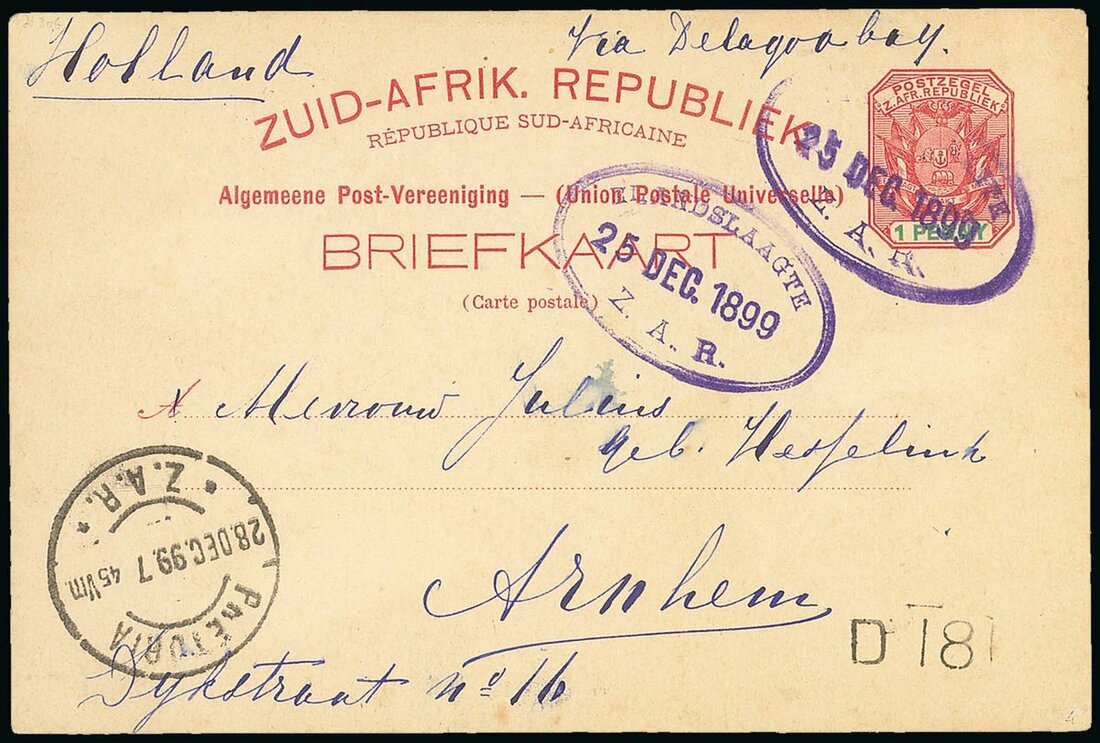 Holland
Via Delagoa bay.
ZUID-AFRIK. REPUBLIEK
RÉPUBLIQUE SUD-AFRICAINE
Algemeene Post-Vereeniging — (Union Postale Universelle)
BRIEFKAART
(Carte postale)
POSTZEGEL
Z. AFR. REPUBLIEK
1 PENNY
25 DEC. 1899
Z. A. R.
ELANDSLAAGTE
25 DEC. 1899
Z. A. R.
A Mevrouw Julius
geb. Hesselink
Arnhem
Dijkstraat no 16
Z.A.R.
28.DEC.99.7 45Vm.
PRETORIA
D 181